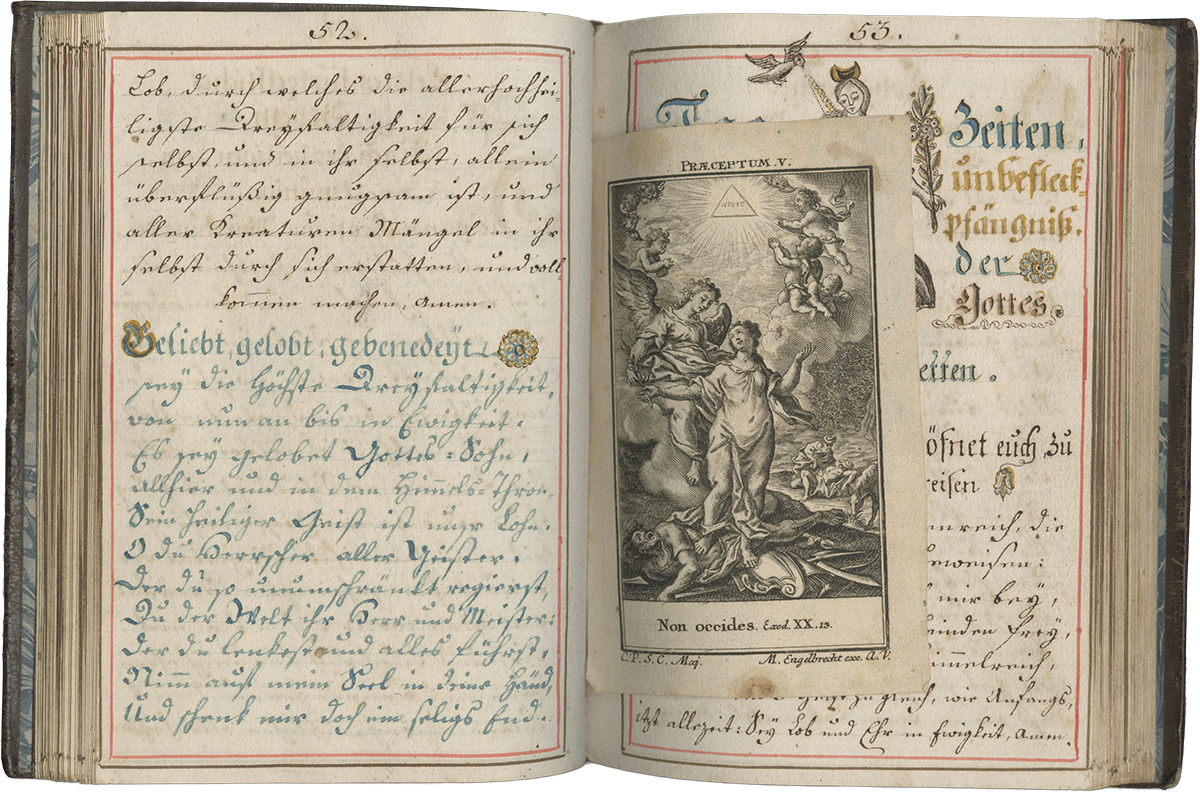 52.
Lob, durch welches die allerhochhei-
ligste Dreyfaltigkeit für sich
selbst, und in ihr selbst, allein
überflüßig gnugsam ist, und
aller Kreaturen Mängel in ihr
selbst durch sich erstatten, und voll
kommen machen, amen.
Geliebt, gelobt, gebenedeyt
sey die höchste Dreyfaltigkeit,
von nun an bis in Ewigkeit.
Es sey gelobet Gottes=Sohn,
allhier und in dem Himmels=Thron,
Sein heiliger Geist ist unsr Lohn.
O du Herrscher aller Geister.
Der du so unumschränkt regierst,
Du der Welt ihr Herr und Meister:
Der du lenkest und alles führst.
Nimm auf mein Seel in deine Händ,
Und schenk mir doch ein seligs End.
53.
Tag
Zeiten,
unbefleck=
pfängniß.
der
Gottes.
etten.
öfnet euch zu
reisen
enreich, die
eweisen:
mir bey,
einden frey,
immelreich,
Geist zugleich, wie Anfangs,
itzt allezeit: Sey Lob und Ehr in Ewigkeit, Amen.
PRÆCEPTUM. V.
Non occides. Exod. XX. 13.
C. P. S. C. Maj.
M. Engelbrecht exc. A. V.